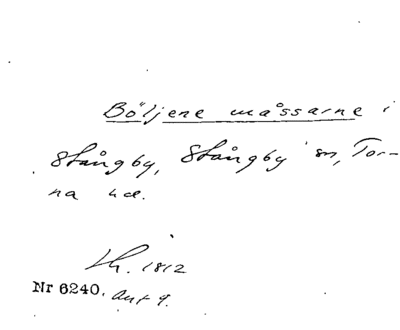 Böljene måssarne i
Stångby, Stångby sn, Tor-
na hd.
Lh. 1812
Nr 6240. Avt 9.